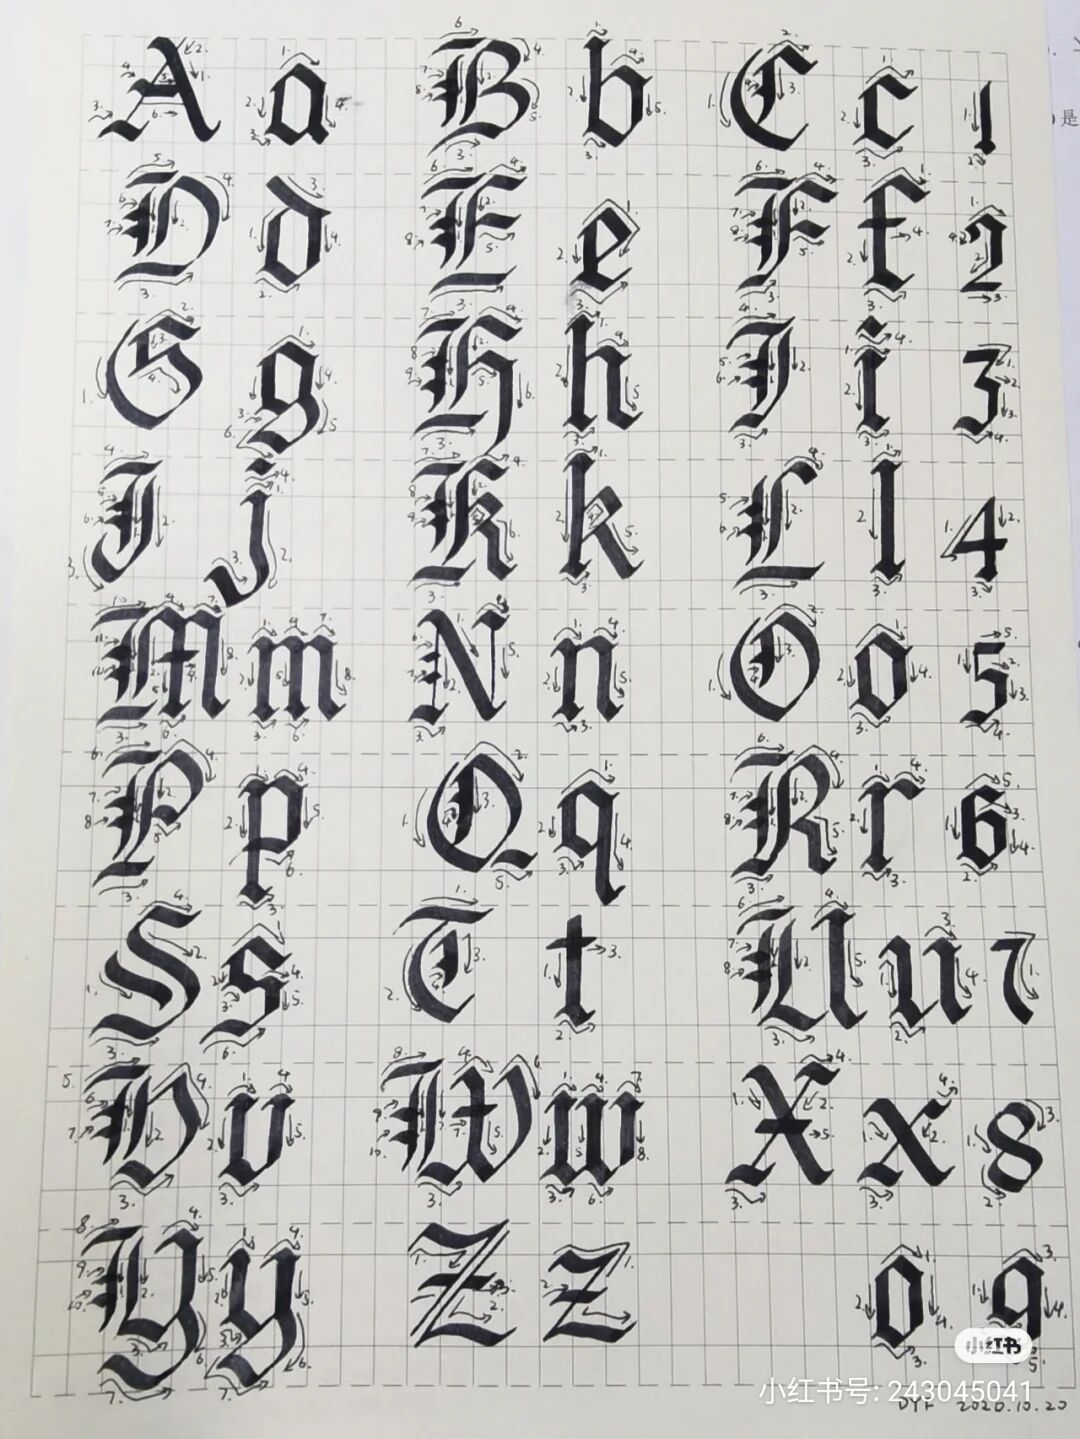 A a B b C c 1
D d E e F f 2
G g H h I i 3
J j K k L l 4
M m N n O o 5
P p Q q R r 6
S s T t U u 7
V v W w X x 8
Y y Z z 0 9
小红书
小红书号: 243045041
DYF 2020.10.20
是